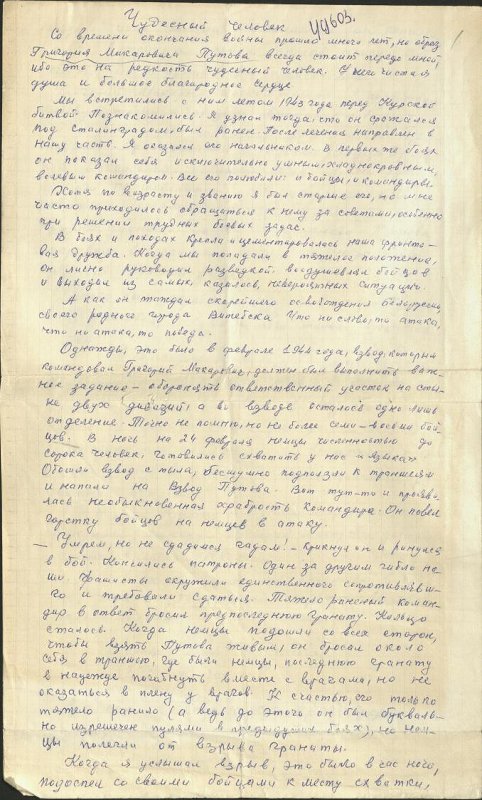 Чудесный человек
УД605.
1
Со времени окончания войны прошло много лет, но образ
Григория Макаровича Путова всегда стоит передо мной,
ибо это на редкость чудесный человек. У него чистая
душа и большое благородное сердце
Мы встретились с ним летом 1943 года перед Курской
битвой Познакомились. Я узнал тогда, что он сражался
под Сталинградом, был ранен. После лечения направлен в
нашу часть. Я оказался его начальником. В первых же боях
он показал себя исключительно умным, хладнокровным,
волевым командиром. Все его полюбили: и бойцы, и командиры.
Хотя по возрасту и званию я был старше его, но мне
часто приходилось обращаться к нему за советами, особенно
при решении трудных боевых задач.
В боях и походах крепла и цементировалась наша фронто-
вая дружба. Когда мы попадали в тяжелое положение,
он лично руководил разведкой, воодушевлял бойцов
и выходил из самых, казалось, невероятных ситуаций.
А как он жаждал скорейшего освобождения Белоруссии,
своего родного города Витебска Что ни слово, то атака,
что ни атака, то победа.
Однажды, это было в феврале 1944 года, взвод, которым
командовал Григорий Макарович, должен был выполнить важ-
ное задание – оборонять ответственный участок на сты-
ке двух дивизий, а во взводе осталось одно лишь
отделение. Точно не помню, но не более семи – восьми бой-
цов. В ночь на 24 февраля немцы численностью до
сорока человек, готовились схватить у нас „языка"
Обошли взвод с тыла, бесшумно подползли к траншеям
и напали на взвод Путова. Вот тут-то и прояви-
лась необыкновенная храбрость командира. Он повел
горстку бойцов на немцев в атаку.
– Умрем, но не сдадимся гадам! – крикнул он и ринулся
в бой. Кончились патроны. Один за другим гибли на-
ши. Фашисты окружили единственного сопротивлявше-
го и требовали сдаться. Тяжело раненый коман-
дир в ответ бросил предпоследнюю гранату. Кольцо
сжалось. Когда немцы подошли со всех сторон,
чтобы взять Путова живым, он бросил около
себя в траншею, где были немцы, последнюю гранату
в надежде погибнуть вместе с врагами, но не
оказаться в плену у врагов. К счастью, его только
тяжело ранило (а ведь до этого он был букваль-
но изрешечен пулями в предыдущих боях), но нем-
цы полегли от взрыва гранаты.
Когда я услышал взрыв, это было в час ночи,
подоспел со своими бойцами к месту схватки,